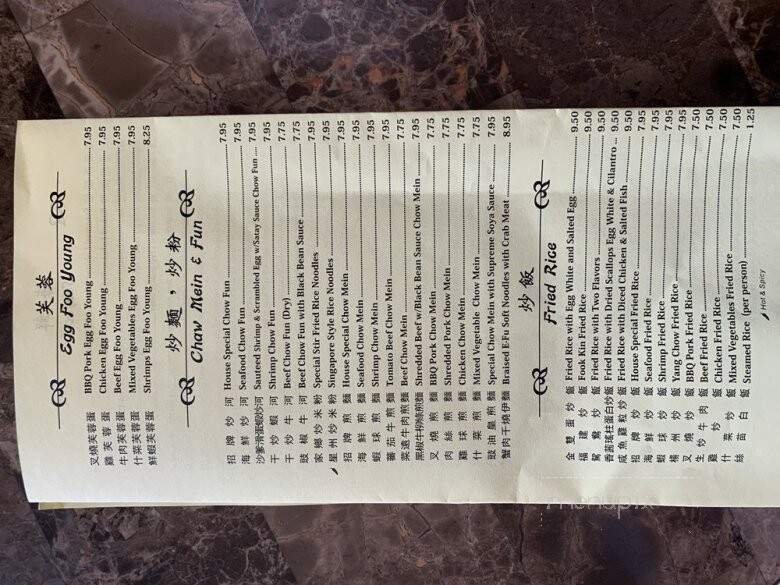 芙蓉
Egg Foo Young
叉燒芙蓉蛋 BBQ Pork Egg Foo Young 7.95
雞芙蓉蛋 Chicken Egg Foo Young 7.95
牛肉芙蓉蛋 Beef Egg Foo Young 7.95
什菜芙蓉蛋 Mixed Vegetables Egg Foo Young 7.95
鮮蝦芙蓉蛋 Shrimps Egg Foo Young 8.25
炒麵，炒粉
Chaw Mein & Fun
招牌炒河 House Special Chow Fun 7.95
海鮮炒河 Seafood Chow Fun 7.95
沙爹滑蛋蝦炒河 Sauteed Shrimp & Scrambled Egg w/Satay Sauce Chow Fun 7.95
干炒蝦河 Shrimp Chow Fun 7.95
干炒牛河 Beef Chow Fun (Dry) 7.75
豉椒牛河 Beef Chow Fun with Black Bean Sauce 7.75
家鄉炒米粉 Special Stir Fried Rice Noodles 7.95
星州炒米粉 Singapore Style Rice Noodles 7.95
招牌煎麵 House Special Chow Mein 7.95
海鮮煎麵 Seafood Chow Mein 7.95
蝦球煎麵 Shrimp Chow Mein 7.95
蕃茄牛煎麵 Tomato Beef Chow Mein 7.95
菜遠牛肉煎麵 Beef Chow Mein 7.75
黑椒牛柳絲煎麵 Shredded Beef w/Black Bean Sauce Chow Mein 7.95
叉燒煎麵 BBQ Pork Chow Mein 7.75
肉絲煎麵 Shredded Pork Chow Mein 7.75
雞球煎麵 Chicken Chow Mein 7.75
什菜煎麵 Mixed Vegetable Chow Mein 7.75
豉油皇煎麵 Special Chow Mein with Supreme Soya Sauce 7.95
蟹肉干燒伊麵 Braised E-Fu Soft Noodles with Crab Meat 8.95
炒飯
Fried Rice
金銀蛋炒飯 Fried Rice with Egg White and Salted Egg 9.50
福建炒飯 Fook Kin Fried Rice 9.50
鴛鴦炒飯 Fried Rice with Two Flavors 9.50
香茜瑤柱蛋白炒飯 Fried Rice with Dried Scallops Egg White & Cilantro 9.50
咸魚雞粒炒飯 Fried Rice with Diced Chicken & Salted Fish 9.50
招牌炒飯 House Special Fried Rice 7.95
海鮮炒飯 Seafood Fried Rice 7.95
蝦球炒飯 Shrimp Fried Rice 7.95
楊州炒飯 Yang Chow Fried Rice 7.95
叉燒炒飯 BBQ Pork Fried Rice 7.50
生炒牛肉飯 Beef Fried Rice 7.50
雞炒飯 Chicken Fried Rice 7.50
什菜炒飯 Mixed Vegetables Fried Rice 7.50
絲苗白飯 Steamed Rice (per person) 1.25
Hot & Spicy
menupix